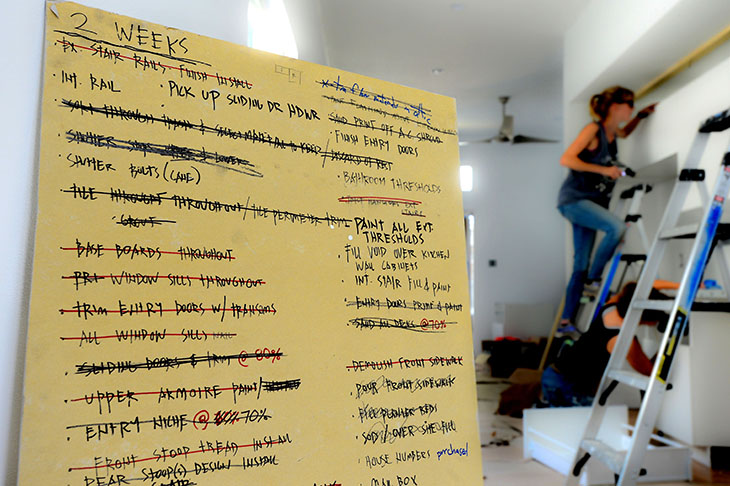 2 WEEKS
EX STAIR RAILS. FINISH INSTALL
· INT. RAIL
· PICK UP SLIDING DR HDWR
SHUTTER BOLTS (CANE)
· TILE THROUGHOUT / TILE PERIMETER TRIM
GROUT
· BASE BOARDS THROUGHOUT
· PRT WINDOW SILLS THROUGHOUT
· TRIM ENTRY DOORS W/ TRANSOMS
· ALL WINDOW SILLS
· SLIDING DOORS & TRIM @ 80%
· UPPER ARMOIRE PAINT/
· ENTRY NICHE @ 70%
· FRONT STOOP TREAD INSTALL
· REAR STOOP(S) DESIGN INSTALL
STAIR
SAND PRINT OFF A.C SHROUD
· FINISH ENTRY DOORS
· BATHROOM THRESHOLDS
· PAINT ALL EXT. THRESHOLDS
· FILL VOID OVER KITCHEN
WALL CABINETS
· INT. STAIR FILL & PAINT
· ENTRY DOORS PRIME & PAINT
· SAND ALL DECKS @70%
· DEMOLISH FRONT SIDEWALK
· POUR FRONT SIDEWALK
· FILL PLANTER BEDS
· SOD / OVER SHE FILL
· HOUSE NUMBERS purchase!
· MAIL BOX